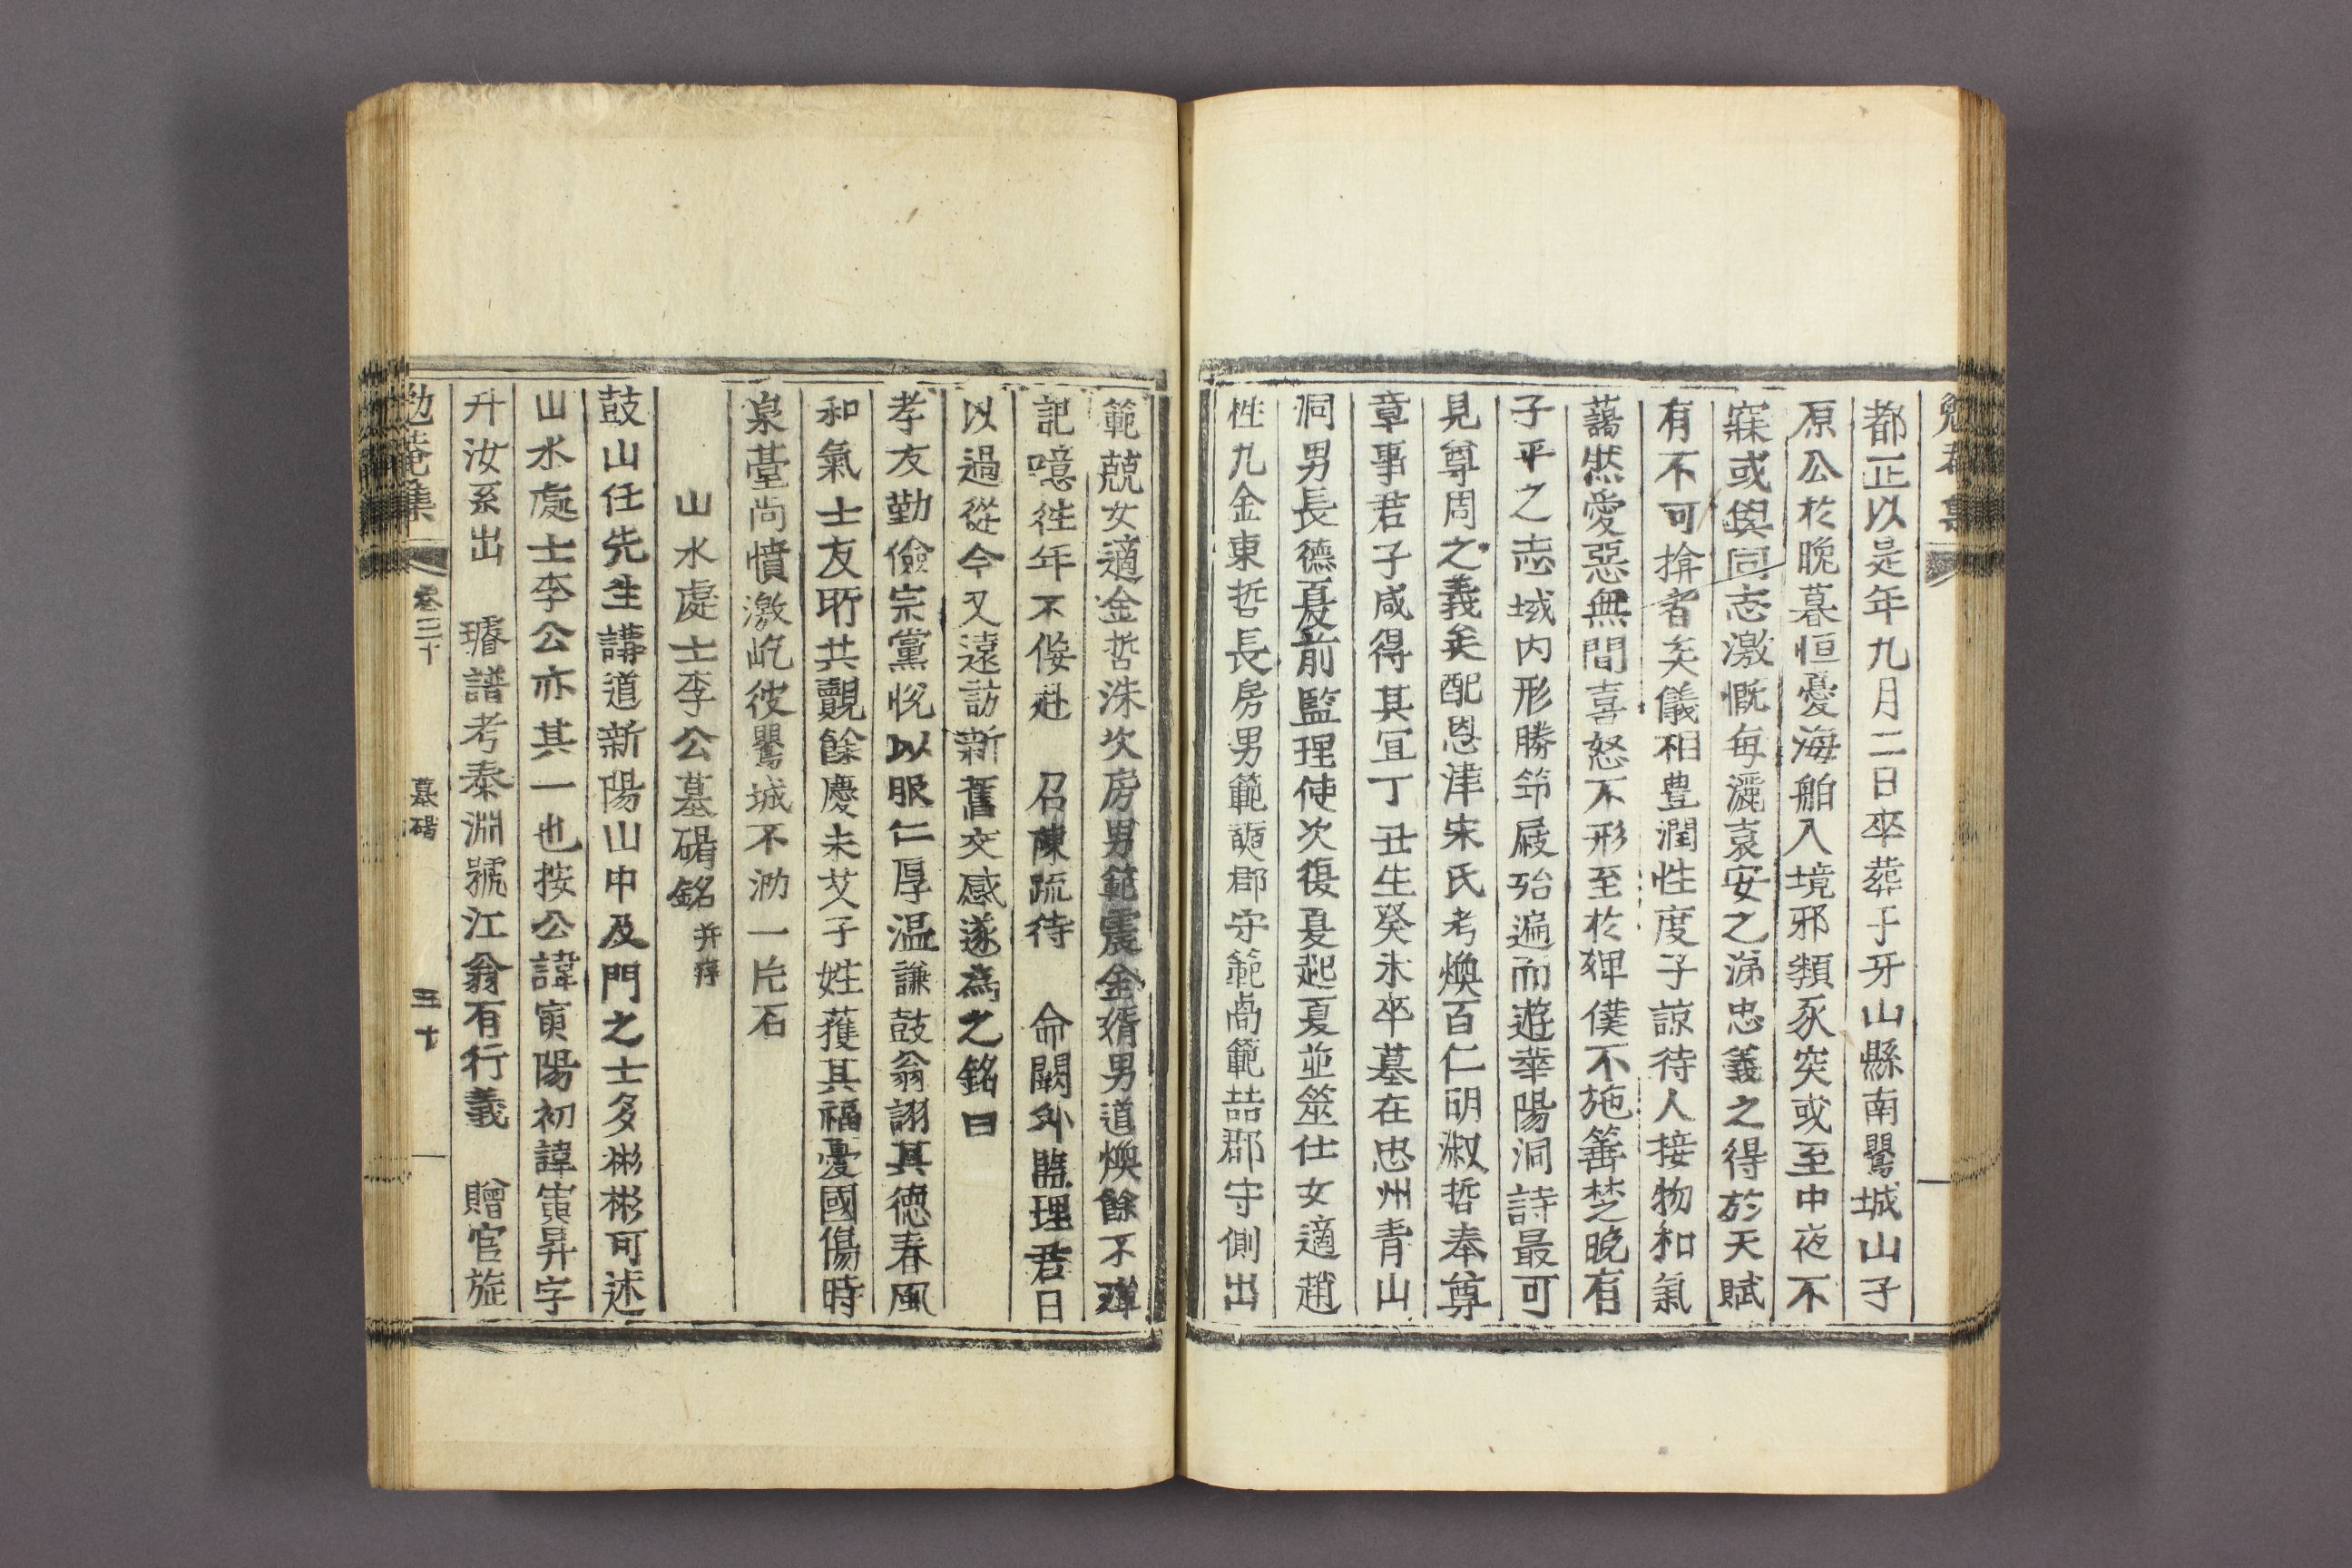 都正以是年九月二日卒葬于牙山縣南鸎城山子
原公於晩暮恒憂海舶入境邪類豕突或至中夜不
寐或與同志激慨每灑袁安之涕忠義之得於天賦
有不可揜者矣儀相豊潤性度子諒待人接物和氣
藹然愛惡無間喜怒不形至於婢僕不施箠楚晩有
子平之志域内形勝笻屐殆遍而遊華陽洞詩最可
見尊周之義矣配恩津宋氏考煥百仁明淑哲奉尊
章事君子咸得其宜丁丑生癸未卒墓在忠州青山
洞男長德夏前監理使次復夏起夏並筮仕女適趙
性九金東哲長房男範 郡守範卨範喆郡守側出
範兢女適金哲洙次房男範震金壻男道煥餘不殫
記噫往年不佞赴 召陳疏待 命闕外監理君日
以過從今又遠訪新舊交感遂爲之銘曰
孝友勤儉宗黨悅以服仁厚溫謙鼓翁詡其德春風
和氣士友所共覿餘慶未艾子姓獲其福憂國傷時
泉臺尙憤激屹彼鸎城不泐一片石
山水處士李公墓碣銘 幷序
鼓山任先生講道新陽山中及門之士多彬彬可述
山水處士李公亦其一也按公諱寅陽初諱寅昇字
升汝系出 璿譜考秦淵號江翁有行義 贈官㫌
勉菴集 卷三十 墓碣 五十